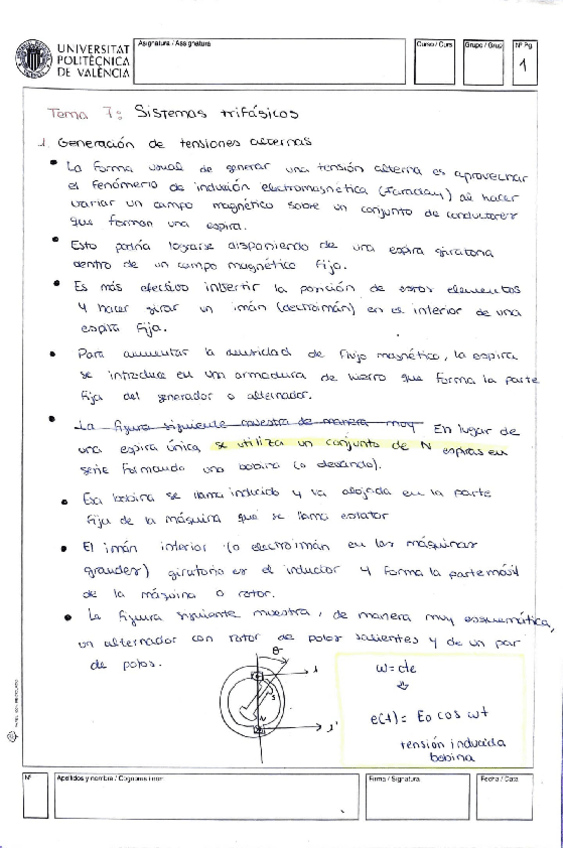 UNIVERSITAT
POLITÈCNICA
DE VALÈNCIA
Asignatura / Assignatura
Curso / Curs
Grupo / Grup
Nº Pg.
1
Tema 7: Sistemas trifásicos
1. Generación de tensiones alternas
• La forma usual de generar una tensión alterna es aprovechar
el fenómeno de inducción electromagnética (Faraday) al hacer
variar un campo magnético sobre un conjunto de conductores
que forman una espira.
• Esto podría lograrse disponiendo de una espira giratoria
dentro de un campo magnético fijo.
• Es más efectivo insertir la porción de estos elementos
y hacer girar un imán (electroimán) en el interior de una
espira fija.
• Para aumentar la densidad de flujo magnético, la espira
se introduce en una armadura de hierro que forma la parte
fija del generador o alternador.
• La figura siguiente muestra de manera muy En lugar de
una espira única, se utiliza un conjunto de N espiras en
serie formando una bobina (o devanado).
• Esa bobina se llama inducido y va alojada en la parte
fija de la máquina que se llama estator
• El imán interior (o electroimán en las máquinas
grandes) giratorio es el inductor y forma la parte móvil
de la máquina o rotor.
• La figura siguiente muestra, de manera muy esquemática,
un alternador con rotor de polos salientes y de un par
de polos.
θ
S
N
1
1'
ω = cte
⇩
e(t) = E₀ cos ωt
tensión inducida
bobina
Nº
Apellidos y nombre / Cognoms i nom
Firma / Signatura
Fecha / Data